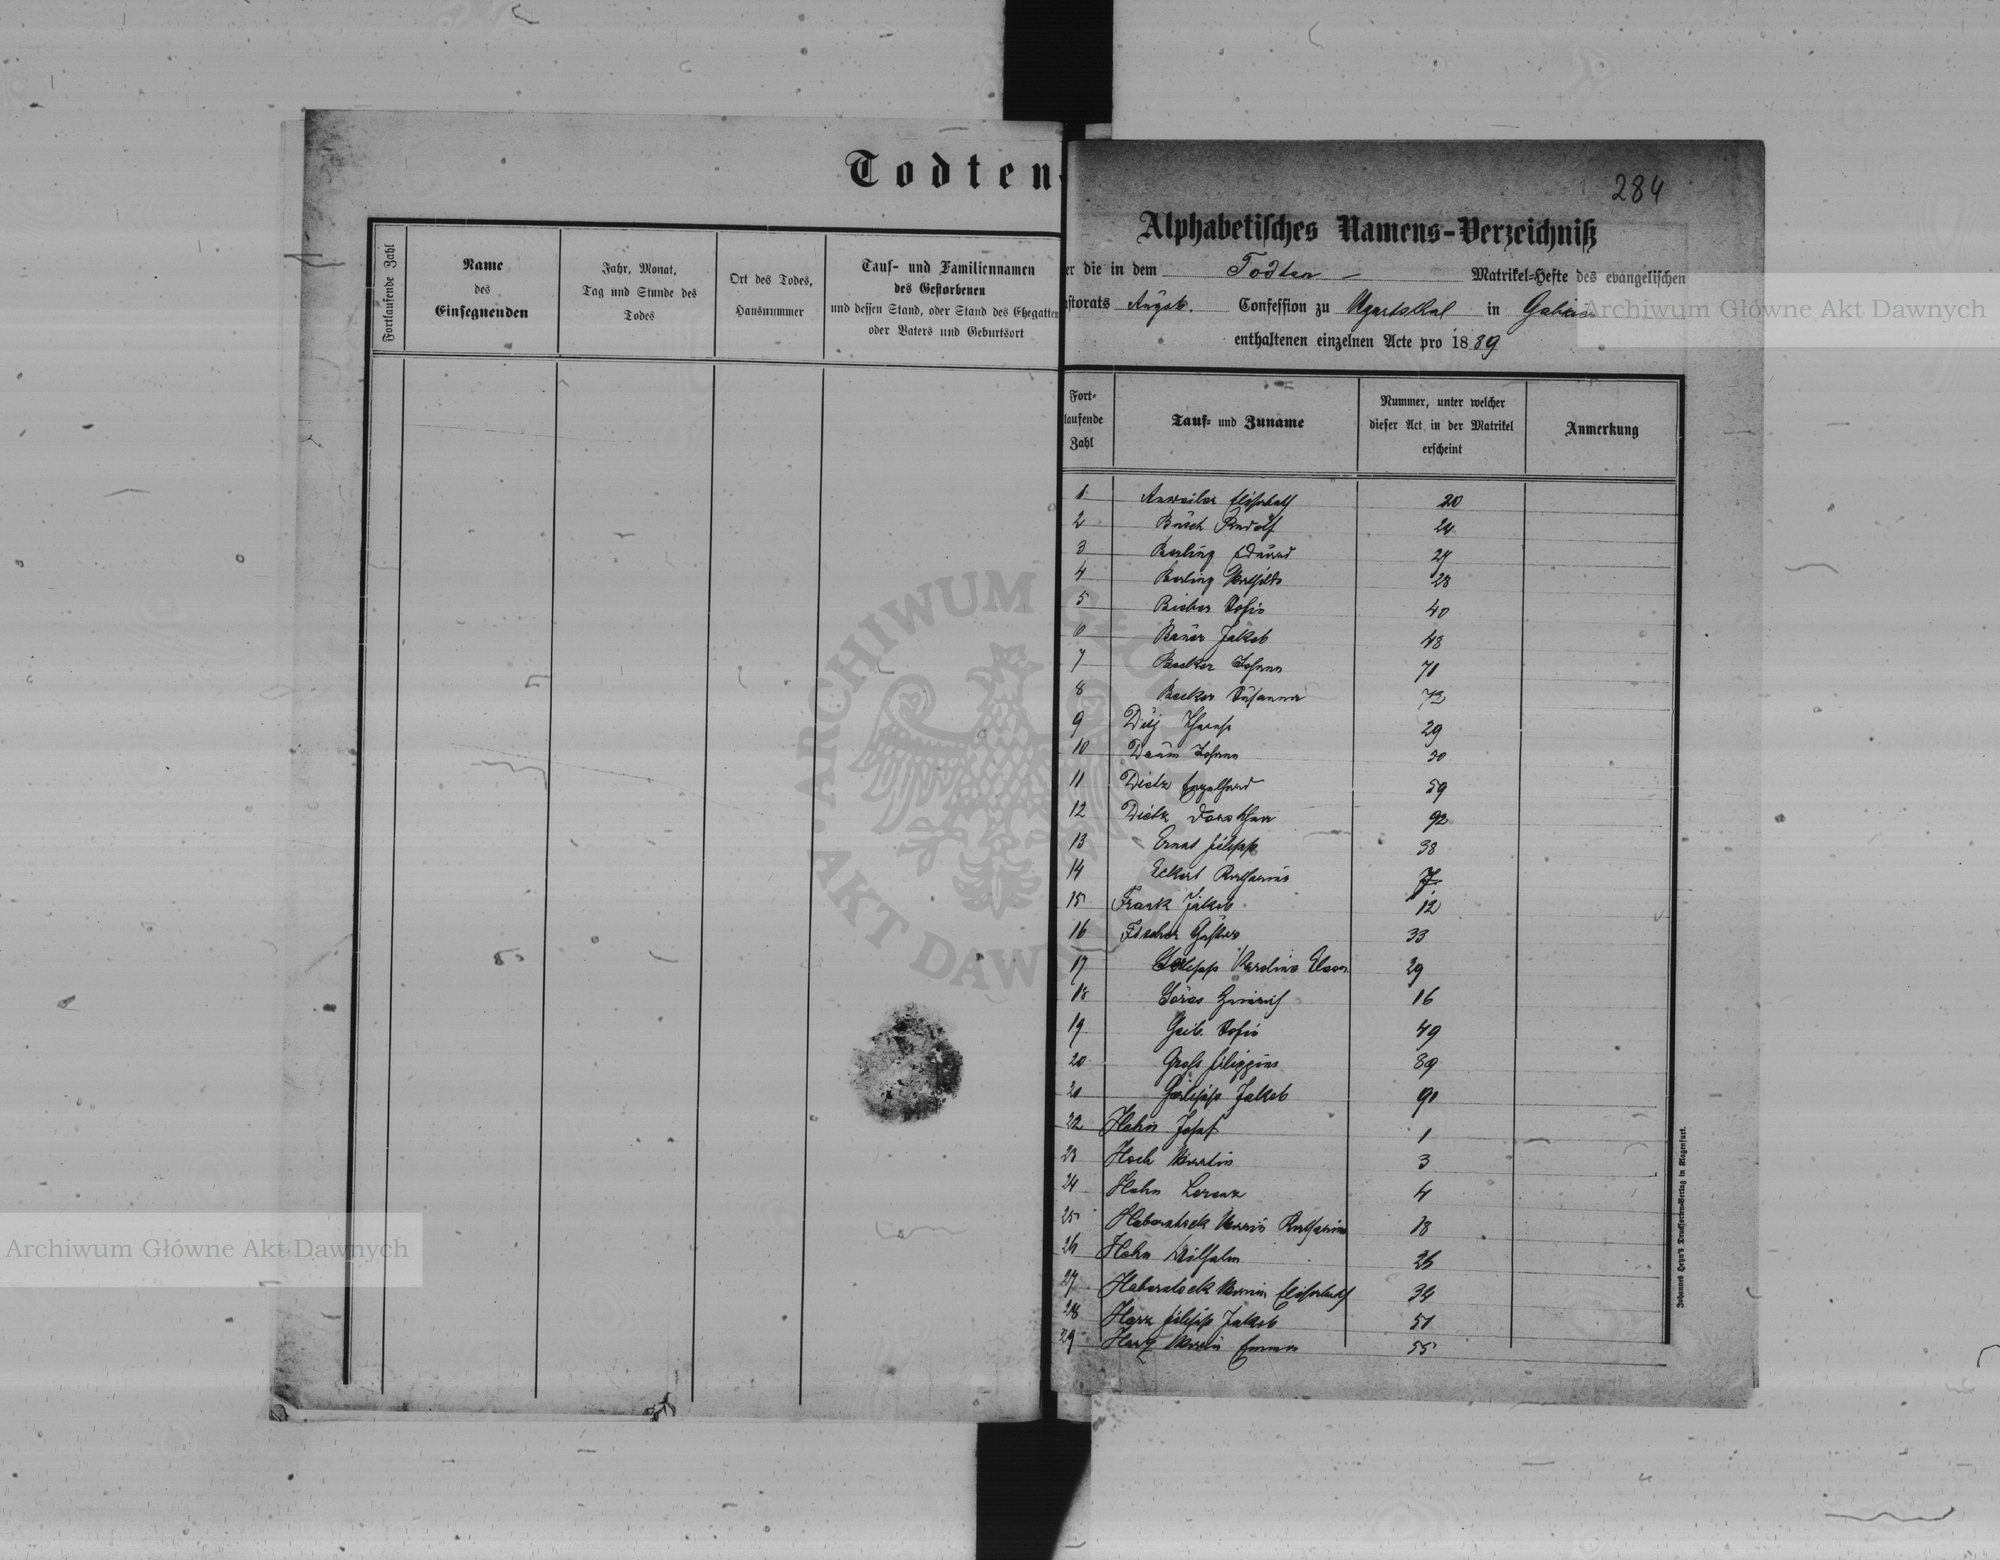 Todten-
Fortlaufende Zahl
Name
des
Einsegnenden
Jahr, Monat,
Tag und Stunde des
Todes
Ort des Todes,
Hausnummer
Tauf- und Familiennamen
des Gestorbenen
und dessen Stand, oder Stand des Ehegatten
oder Vaters und Geburtsort
284
Alphabetisches Namens-Verzeichniß
er die in dem Todten — Matrikel-Hefte des evangelischen
storats Augsb. Confession zu Ugartsthal in
enthaltenen einzelnen Acte pro 1889
Fort-
laufende
Zahl
Tauf- und Zuname
Nummer, unter welcher
dieser Act in der Matrikel
erscheint
Anmerkung
1 Anweiler Elisabeth 20
2 Busch Rudolf 24
3 Berling Eduard
4 Berling Mathilde 28
5 Bieber Sofie 40
6 Bauer Jakob 48
7 Becker Johann 71
8 Becker Susanna 72
9 29
10 Johann
11 Dietz Engelhard 59
12 Dietz Dorothea 92
13 Ernst Filipp 38
14 Eckert Katharina 7
15 Frank Jakob 12
16 Fischer Gustav 33
17 Karolina
18 Heinrich 16
19 Geib Sofie 49
20 Groß Filippina 89
Jakob 91
22 Hahn Josef 1
23 Hoch Martin 3
24 Hahn Lorenz 4
25 Haberstock Maria Katharina 18
26 Hahn Wilhelm
27 Haberstock Maria Elisabeth 34
28 Harz Filipp Jakob 51
29 Harz Maria Emma 55
Johann Leon's Drucksortenverlag in Klagenfurt.
ARCHIWUM GŁÓWNE AKT DAWNYCH
Archiwum Główne Akt Dawnych
Archiwum Główne Akt Dawnych